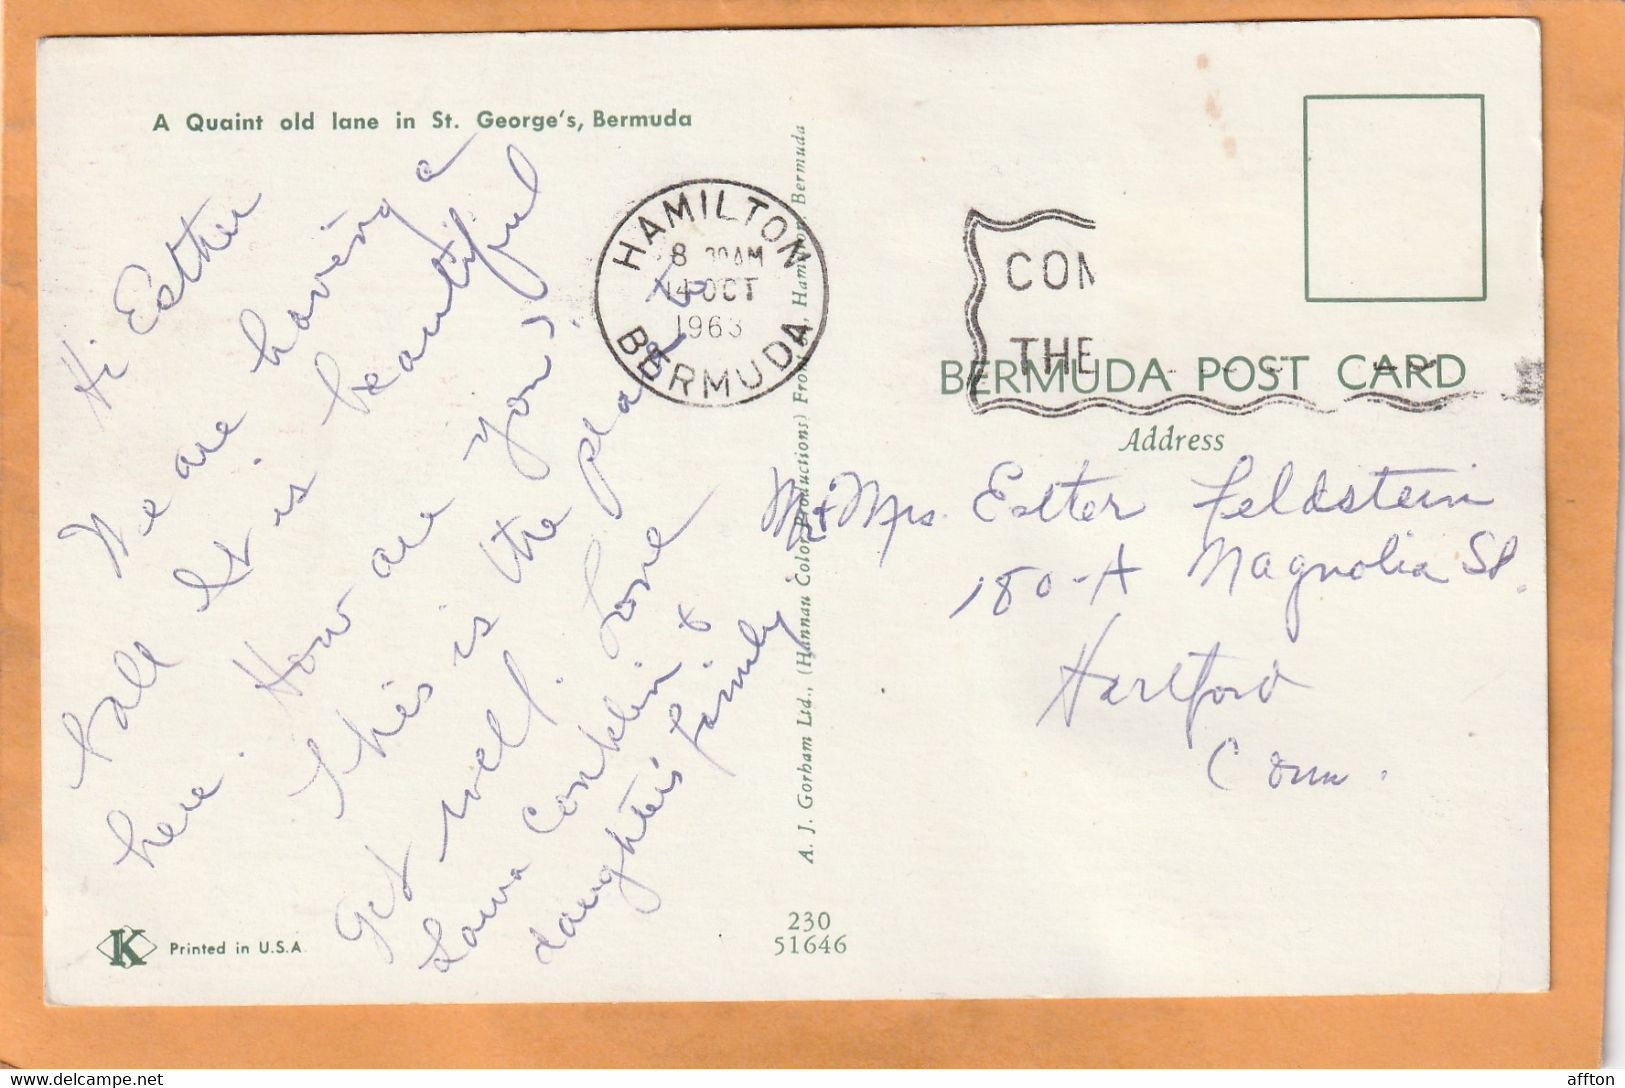 A Quaint old lane in St. George's, Bermuda
Hi Esther
We are having a
ball. It is beautiful
here. How are you?
This is the place to
get well. Love
Laura Conklin &
daughter's family
K Printed in U.S.A.
HAMILTON
8 30AM
14 OCT
1963
BERMUDA
A. J. Gorham Ltd., (Hannau Color Productions) Front St., Hamilton, Bermuda
230
51646
COM
THE
BERMUDA POST CARD
Address
Mr + Mrs. Ester Feldstein
180-A Magnolia St.
Hartford
Conn.
affton